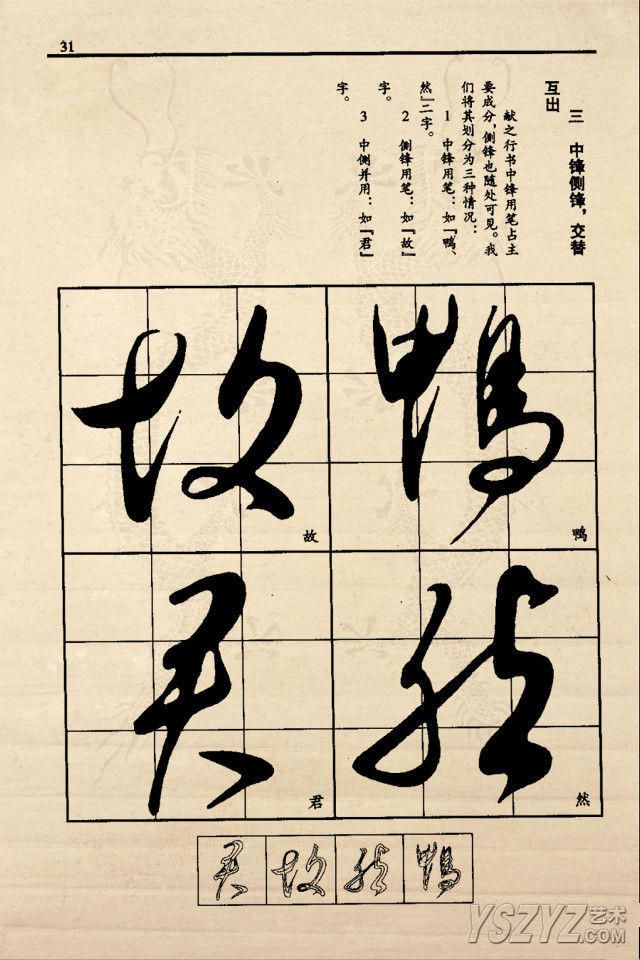 31
三 中锋侧锋，交替
互出
献之行书中锋用笔占主
要成分，侧锋也随处可见。我
们将其划分为三种情况：
1 中锋用笔：如『鸭、
然』二字。
2 侧锋用笔：如『故』
字。
3 中侧并用：如『君』
字。
鸭
鸭
然
然
故
故
君
君
君 故 然 鸭
YSZYZ艺术
.COM